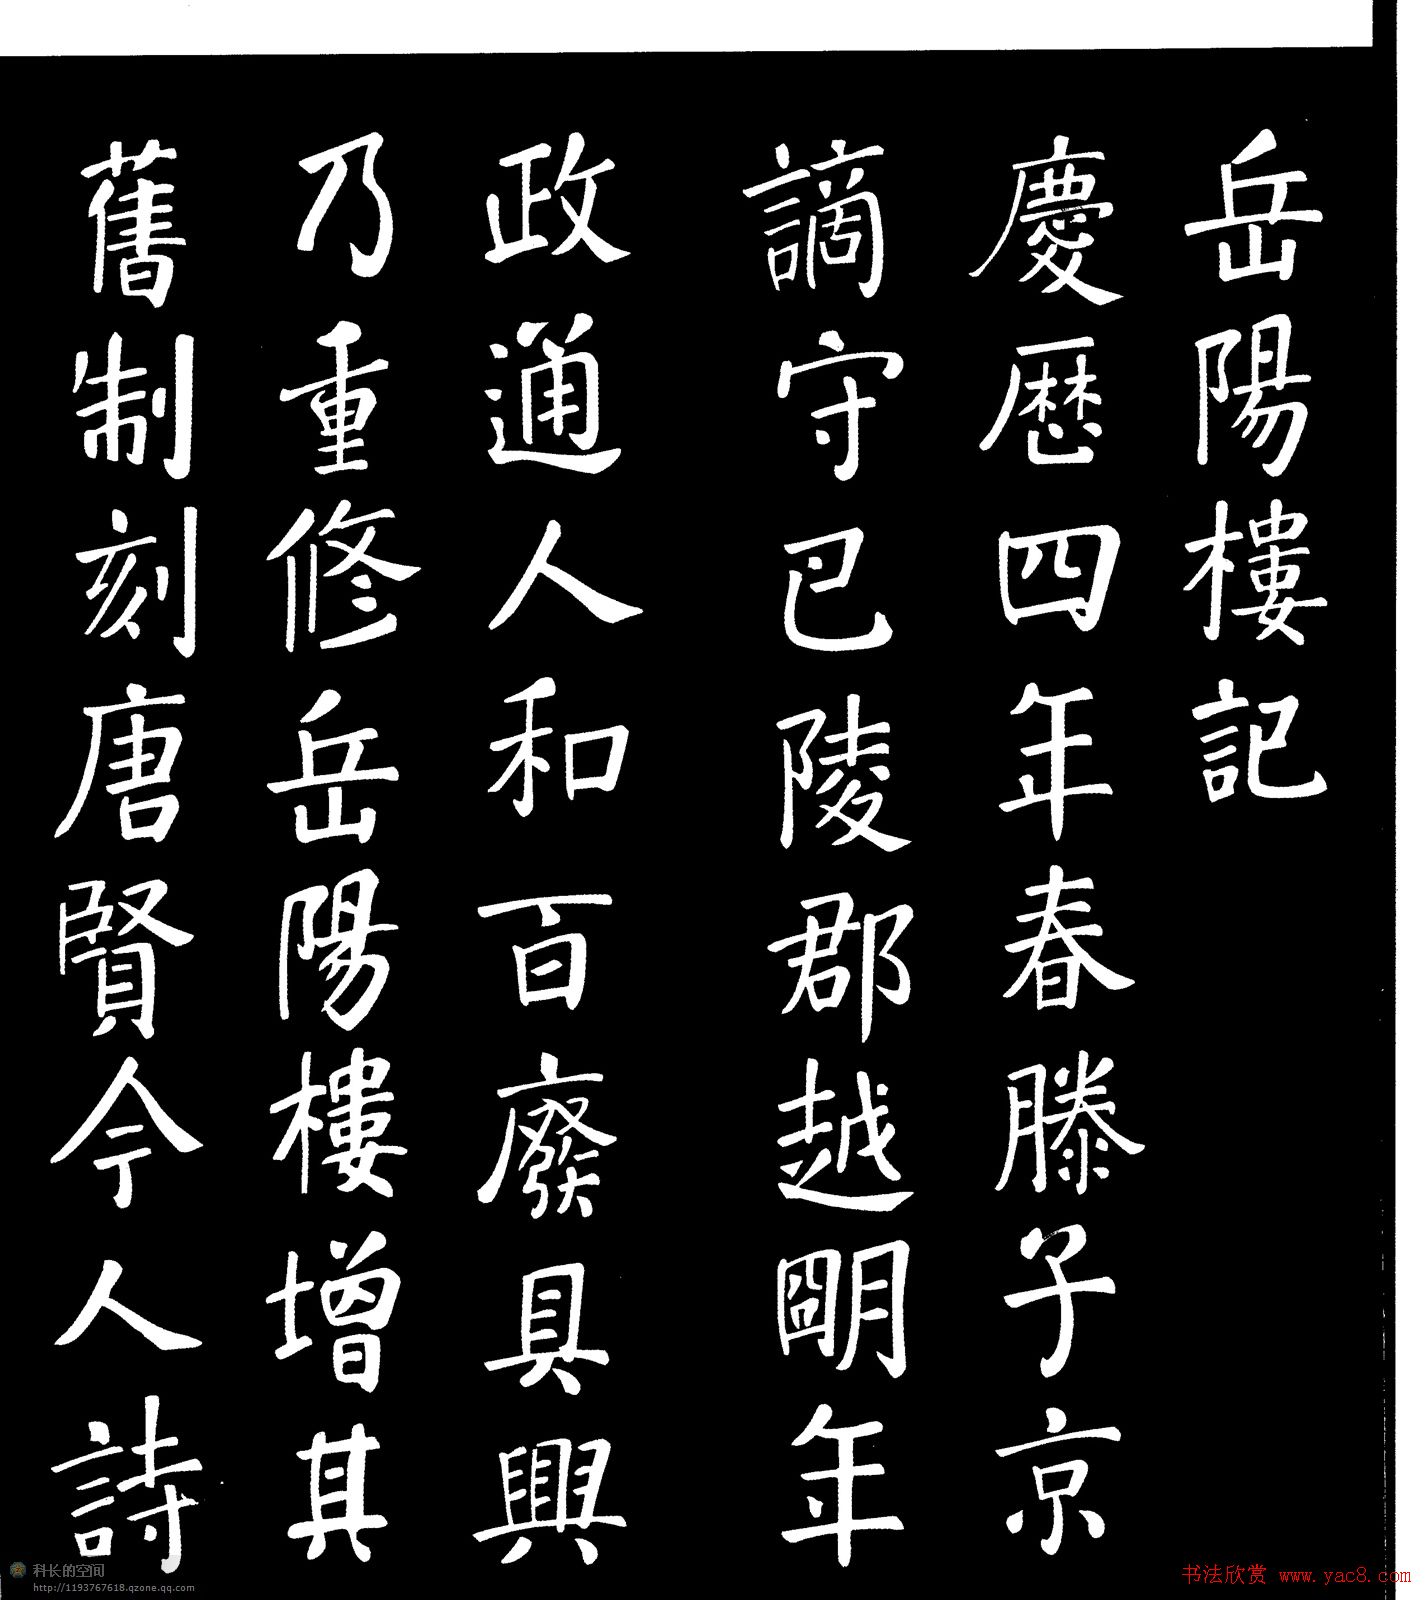 岳陽樓記
慶歷四年春滕子京
謫守巴陵郡越朙年
政通人和百廢具興
乃重修岳陽樓增其
舊制刻唐賢今人詩
科长的空间
http://1193767618.qzone.qq.com
书法欣赏 www.yac8.com